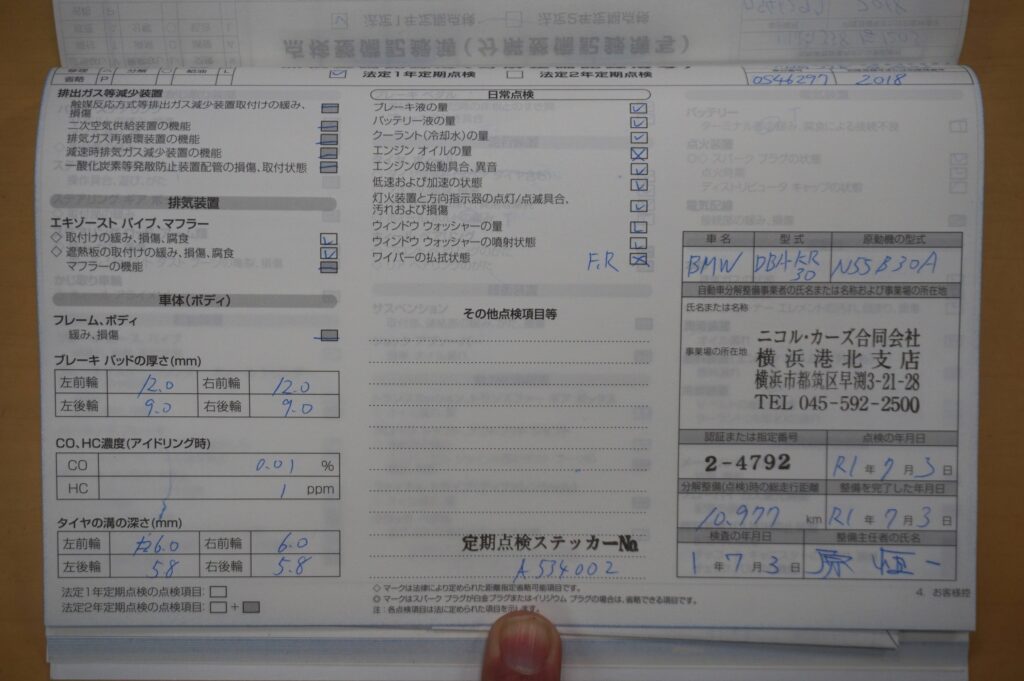 点検整備記録簿(分解整備記録簿写)
省略 P
法定1年定期点検 法定2年定期点検
0546297 2018
排出ガス等減少装置
触媒反応方式等排出ガス減少装置取付けの緩み、
損傷
二次空気供給装置の機能
排気ガス再循環装置の機能
減速時排気ガス減少装置の機能
一酸化炭素等発散防止装置配管の損傷、取付状態
排気装置
エキゾースト パイプ、マフラー
◇ 取付けの緩み、損傷、腐食
◇ 遮熱板の取付けの緩み、損傷、腐食
マフラーの機能
車体(ボディ)
フレーム、ボディ
緩み、損傷
ブレーキ パッドの厚さ(mm)
左前輪 12.0 右前輪 12.0
左後輪 9.0 右後輪 9.0
CO、HC濃度(アイドリング時)
CO 0.01 %
HC 1 ppm
タイヤの溝の深さ(mm)
左前輪 6.0 右前輪 6.0
左後輪 5.8 右後輪 5.8
法定1年定期点検の点検項目:
法定2年定期点検の点検項目: +
日常点検
ブレーキ液の量
バッテリー液の量
クーラント(冷却水)の量
エンジン オイルの量
エンジンの始動具合、異音
低速および加速の状態
灯火装置と方向指示器の点灯/点滅具合、
汚れおよび損傷
ウィンドウ ウォッシャーの量
ウィンドウ ウォッシャーの噴射状態
ワイパーの払拭状態 F,R
その他点検項目等
定期点検ステッカーNo
A534002
◇ マークは法律により定められた距離指定省略可能項目です。
◎ マークはスパーク プラグが白金プラグまたはイリジウム プラグの場合は、省略できる項目です。
注:各点検項目は法に定められた項目を示します。
車名 型式 原動機の型式
BMW DBA-KR30 N55B30A
自動車分解整備事業者の氏名または名称および事業場の所在地
氏名または名称
ニコル・カーズ合同会社
事業場の所在地
横浜港北支店
横浜市都筑区早渕3-21-28
TEL 045-592-2500
認証または指定番号 点検の年月日
2-4792 R1年7月3日
分解整備(点検)時の総走行距離 整備を完了した年月日
10,977 km R1年7月3日
検査の年月日 整備主任者の氏名
1年7月3日 原 恒一
4. お客様控